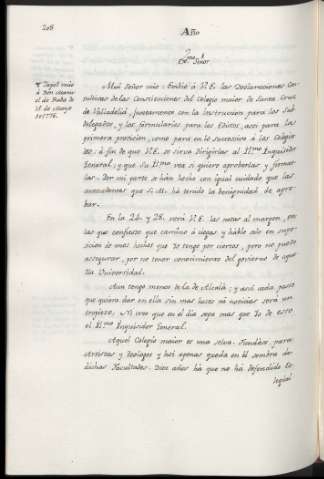 208
Año
Exmo. Señor.
¶ Papel mio
á Don Manu-
el de Roda de
18 de Mayo
de 1776.
Mui Señor mio: Embio á V.E. las Declaraciones Con-
sultivas de las Constituciones del Colegio maior de Santa Cruz
de Valladolid, juntamente con la Instruccion para los Sub-
delegados, y los formularios para los Edictos, assi para la
primera provision, como para en lo sucessivo á los Colegia-
les: á fin de que V.E. se sirva dirigirlas al Illmo Inquisidor
General; y que Su Illma vea si quiere aprobarlas y firmar-
las. Por mi parte se han hecho con igual cuidado que las
antecedentes que S.M. há tenido la benignidad de apro-
bar.
En la 26. y 28. verá V.E. las notas al margen, en
las que confieso que camino á ciegas y hablo solo en supo-
sicion de unos hechos que Yo tengo por ciertos, pero no puedo
assegurar, por no tener conocimiento del govierno de aque-
lla Universidad.
Aun tengo menos de la de Alcalá; y assi cada passo
que quiera dar en ella sin mas luces ni noticias será un
tropiezo. Ni creo que en el dia sepa mas que Yo de esto
el Illmo Inquisidor General.
Aquel Colegio maior es una selva. Fundose para
Artistas y Teologos y hoi apenas queda en él sombra de
dichas Facultades. Diez años há que no há defendido Co-
legial